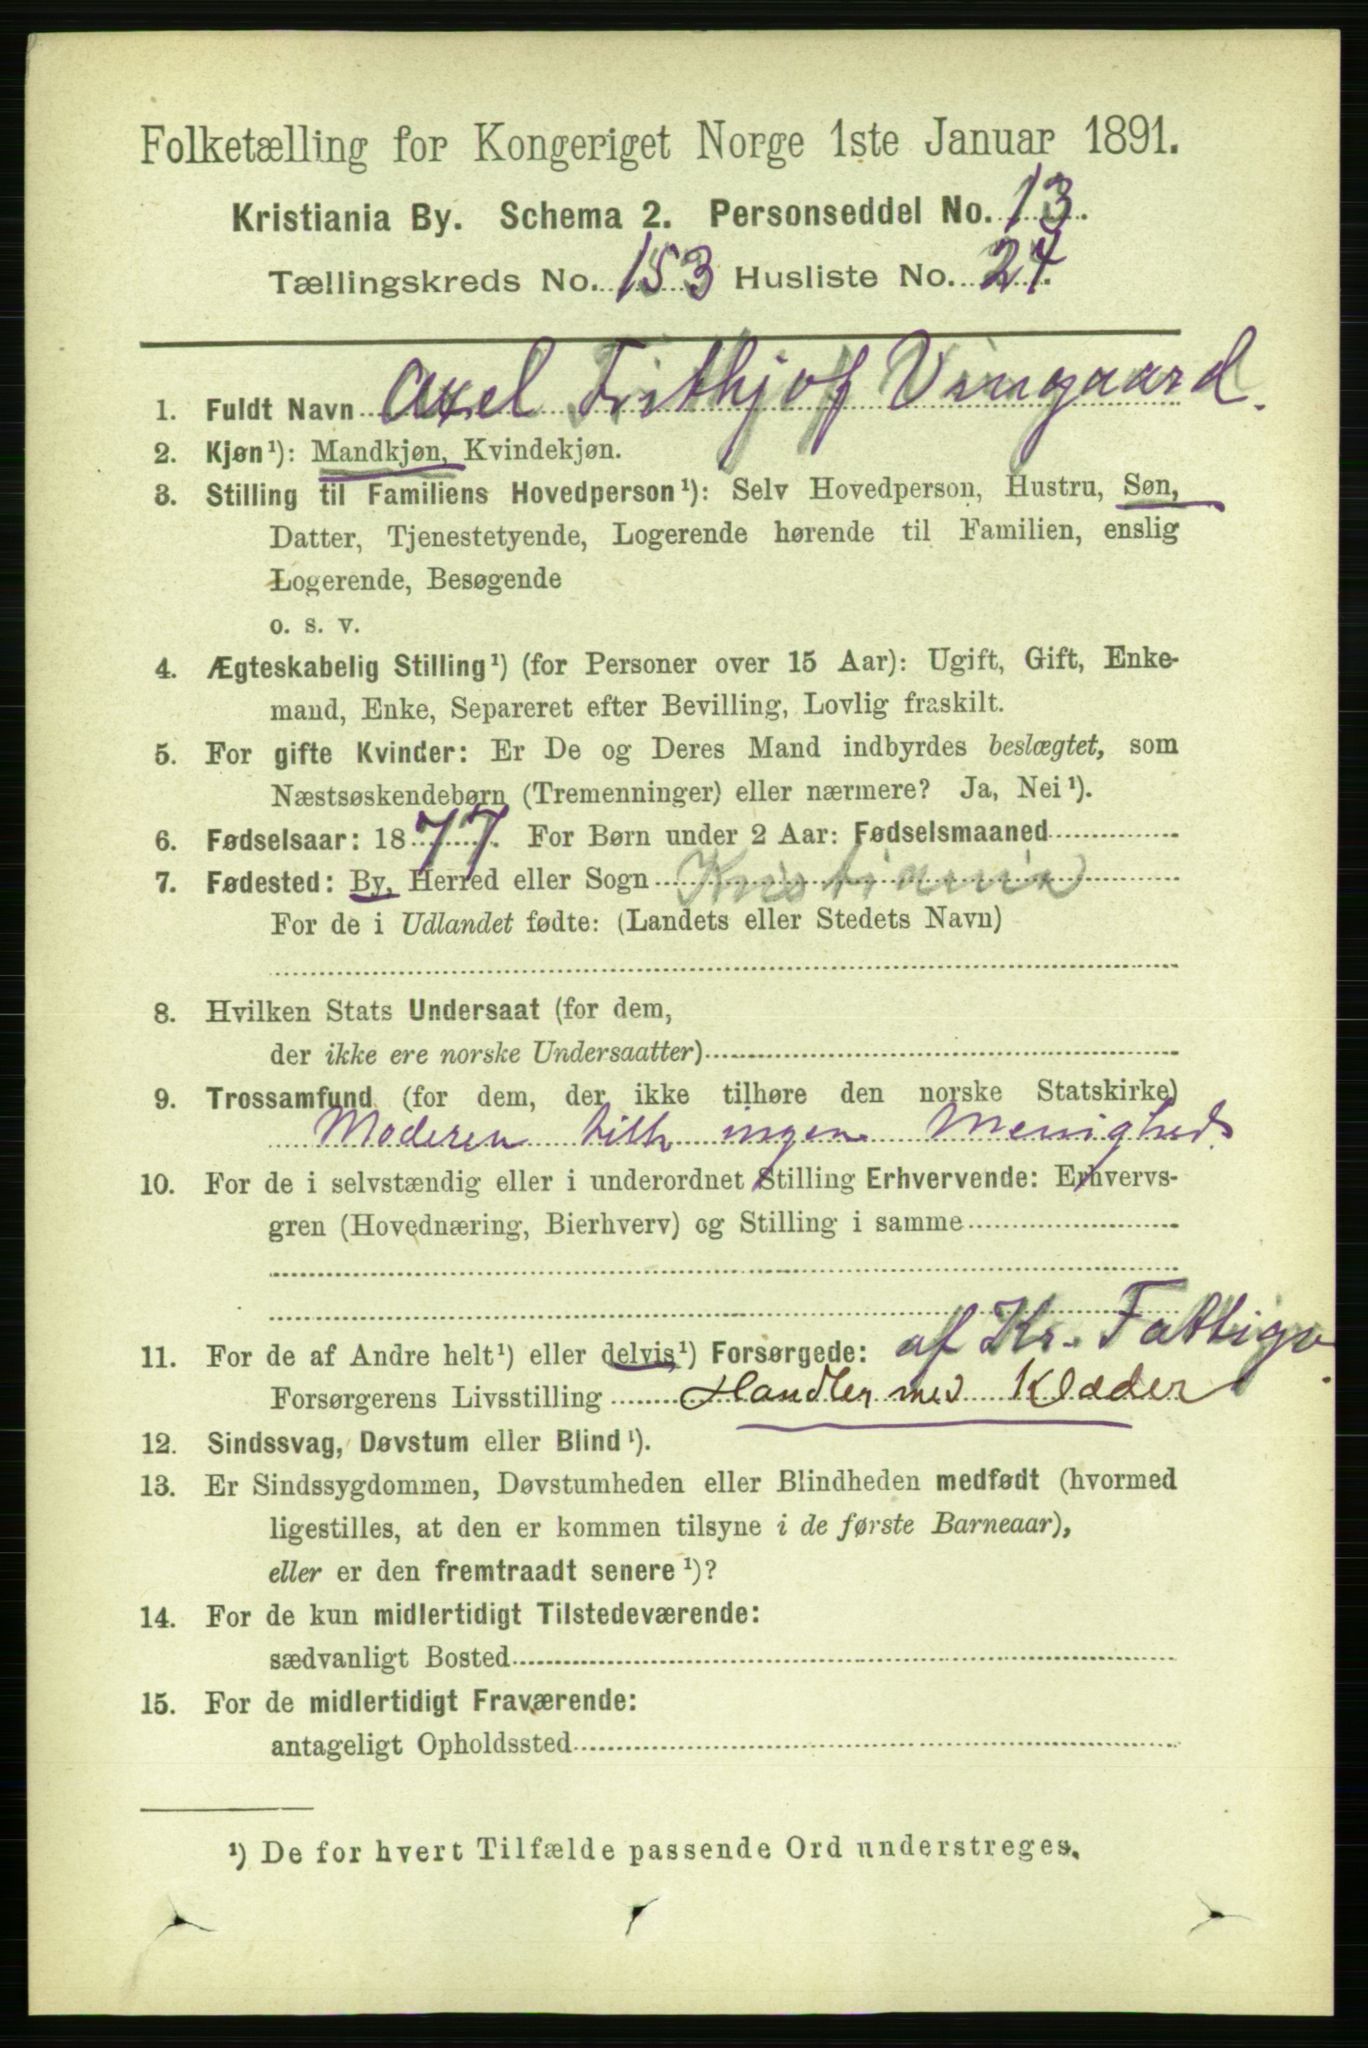 Folketælling for Kongeriget Norge 1ste Januar 1891.
Kristiania By. Schema 2. Personseddel No. 13.
Tællingskreds No. 153 Husliste No. 24.
1. Fuldt Navn Axel Frithjof Vingaard.
2. Kjøn¹): Mandkjøn, Kvindekjøn.
3. Stilling til Familiens Hovedperson¹): Selv Hovedperson, Hustru, Søn,
Datter, Tjenestetyende, Logerende hørende til Familien, enslig
Logerende, Besøgende
o. s. v.
4. Ægteskabelig Stilling¹) (for Personer over 15 Aar): Ugift, Gift, Enke-
mand, Enke, Separeret efter Bevilling, Lovlig fraskilt.
5. For gifte Kvinder: Er De og Deres Mand indbyrdes beslægtet, som
Næstsøskendebørn (Tremenninger) eller nærmere? Ja, Nei¹).
6. Fødselsaar: 1877. For Børn under 2 Aar: Fødselsmaaned
7. Fødested: By, Herred eller Sogn Kristiania
For de i Udlandet fødte: (Landets eller Stedets Navn)
8. Hvilken Stats Undersaat (for dem,
der ikke ere norske Undersaatter)
9. Trossamfund (for dem, der ikke tilhøre den norske Statskirke)
Moderen tilh. ingen Menighed.
10. For de i selvstændig eller i underordnet Stilling Erhvervende: Erhvervs-
gren (Hovednæring, Bierhverv) og Stilling i samme
11. For de af Andre helt¹) eller delvis¹) Forsørgede: af Kr. Fattigv.
Forsørgerens Livsstilling Handler med Klæder
12. Sindssvag, Døvstum eller Blind¹).
13. Er Sindssygdommen, Døvstumheden eller Blindheden medfødt (hvormed
ligestilles, at den er kommen tilsyne i de første Barneaar),
eller er den fremtraadt senere¹)?
14. For de kun midlertidigt Tilstedeværende:
sædvanligt Bosted
15. For de midlertidigt Fraværende:
antageligt Opholdssted
¹) De for hvert Tilfælde passende Ord understreges.